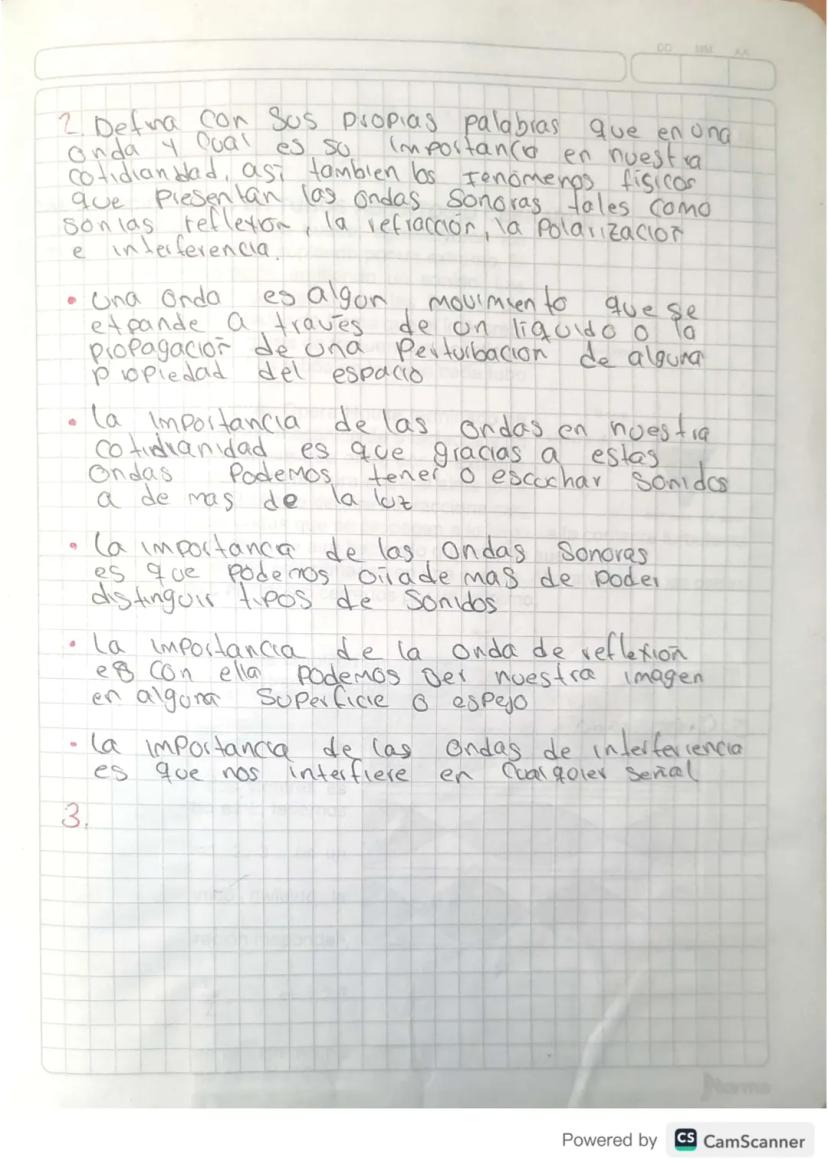 DD MM AA
2. Defina con sus propias palabras que en una
onda y cual es su importanca en nuestra
cotidiandad, asi tambien los fenomenos fisicos
que presentan las ondas sonoras tales como
son las reflexion, la refracción, la polarización
e interferencia.
• una onda es algun movimiento que se
expande a través de un liquido o la
propagación de una perturbacion de alguna
propiedad del espacio
• la importancia de las ondas en nuestra
cotidianidad es que gracias a estas
ondas podemos tener o escuchar sonidos
a de mas de la luz
• la importanca de las ondas sonoras
es que podemos oir ade mas de poder
distinguir tipos de sonidos
• la importancia de la onda de reflexion
es con ella podemos ver nuestra imagen
en alguna superficie o espejo
• la importancia de las ondas de interferiencia
es que nos interfiere en cualquier señal
3.
Norma
Powered by CS CamScanner